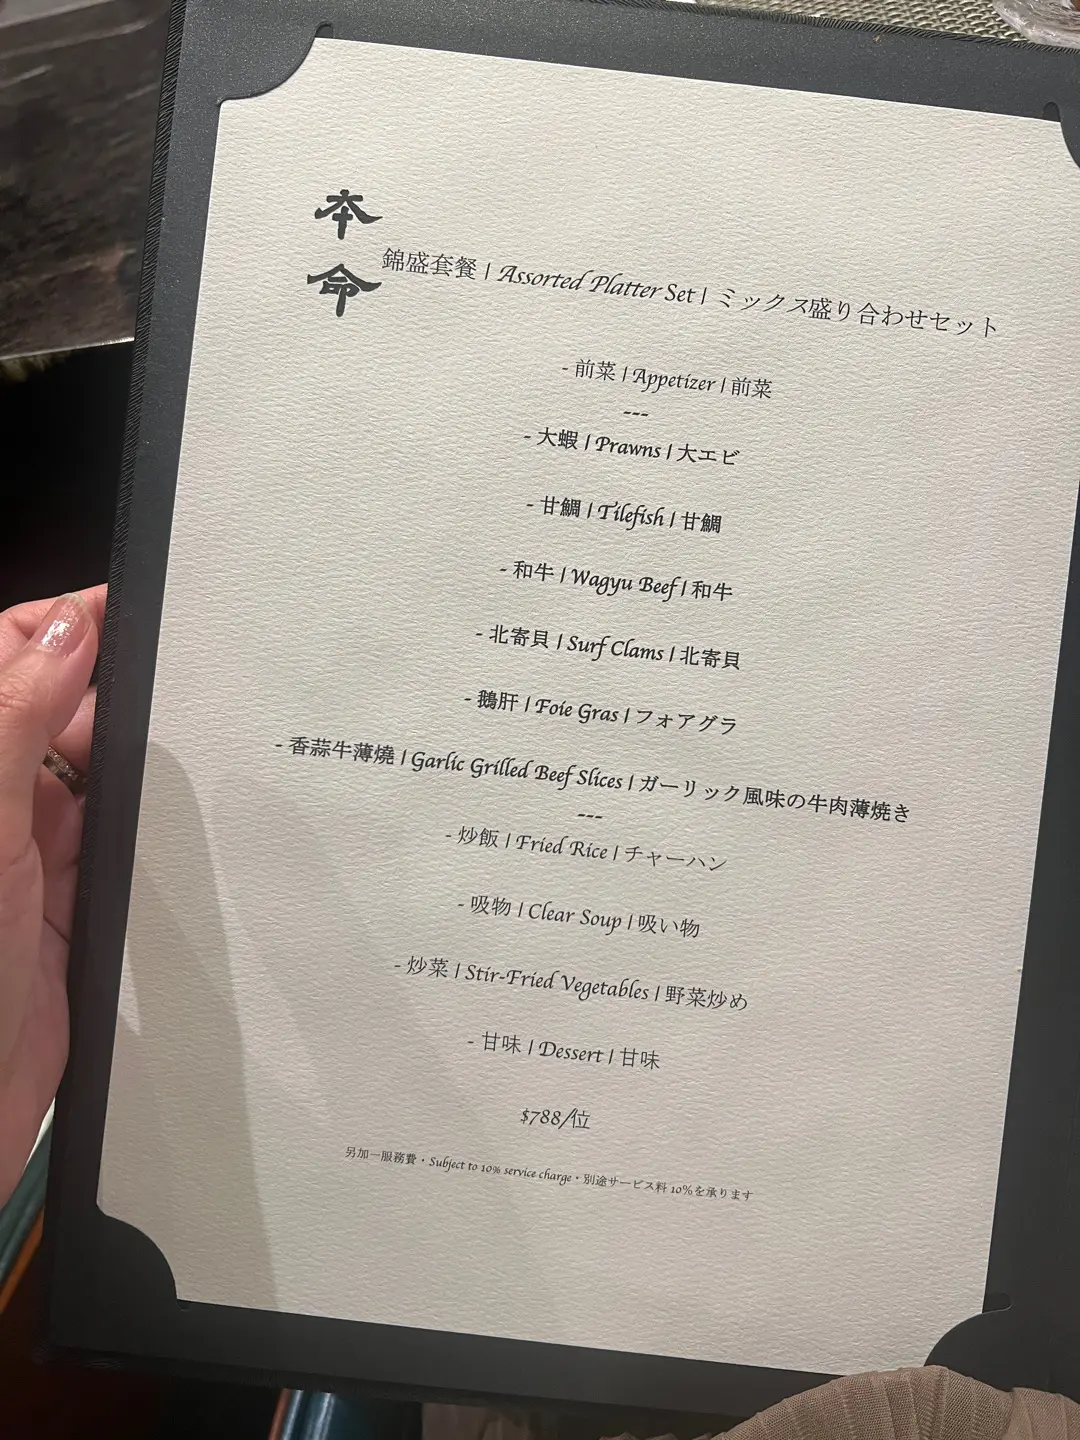 本命
錦盛套餐 | Assorted Platter Set | ミックス盛り合わせセット
- 前菜 | Appetizer | 前菜
---
- 大蝦 | Prawns | 大エビ
- 甘鯛 | Tilefish | 甘鯛
- 和牛 | Wagyu Beef | 和牛
- 北寄貝 | Surf Clams | 北寄貝
- 鵝肝 | Foie Gras | フォアグラ
- 香蒜牛薄燒 | Garlic Grilled Beef Slices | ガーリック風味の牛肉薄焼き
---
- 炒飯 | Fried Rice | チャーハン
- 吸物 | Clear Soup | 吸い物
- 炒菜 | Stir-Fried Vegetables | 野菜炒め
- 甘味 | Dessert | 甘味
$788/位
另加一服務費・Subject to 10% service charge・別途サービス料 10%を承ります